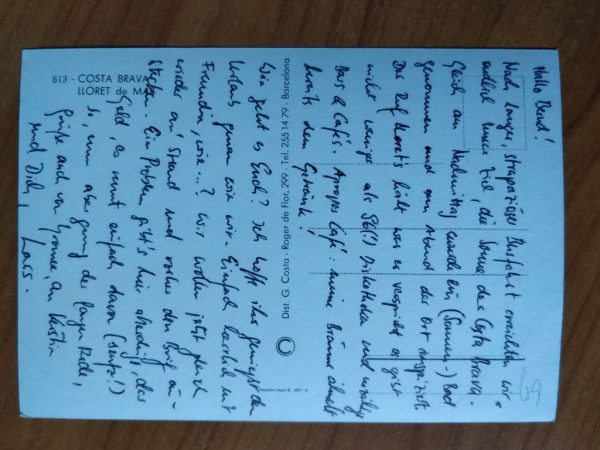 613 - COSTA BRAVA
LLORET de MA
Hallo Bernd!
Nach langer, strapaziöser Busfahrt erreichten wir
endlich unser Ziel, die Sonne der Costa Brava.
Gleich am Nachmittag wurde ein (Sonnen-) Bad
genommen und am Abend der Ort inspiziert.
Der Ruf Llorets hält was er verspricht es gibt
nicht weniger als Diskotheken und unzählige
Bars & Cafés. Apropos Café: meine Bräune ähnelt
bereits dem Getränk!
Dist. G. Costa - Roger de Flor, 299 - Tel. 255 14 79 - Barcelona
Wie geht es Euch? Ich hoffe ihr genießt den
Urlaub genau wie wir. Einfach herrlich mit
Freundin, wie...? Wir wollen jetzt gleich
wieder an Strand und vorher den Brief ein-
stecken. Ein Problem gibt's hier allerdings, das
Geld, es rennt einfach davon (seufz!)
So, nun aber genug der langen Rede,
Grüße auch von Yvonne an Kerstin
und Dich,
Lars.